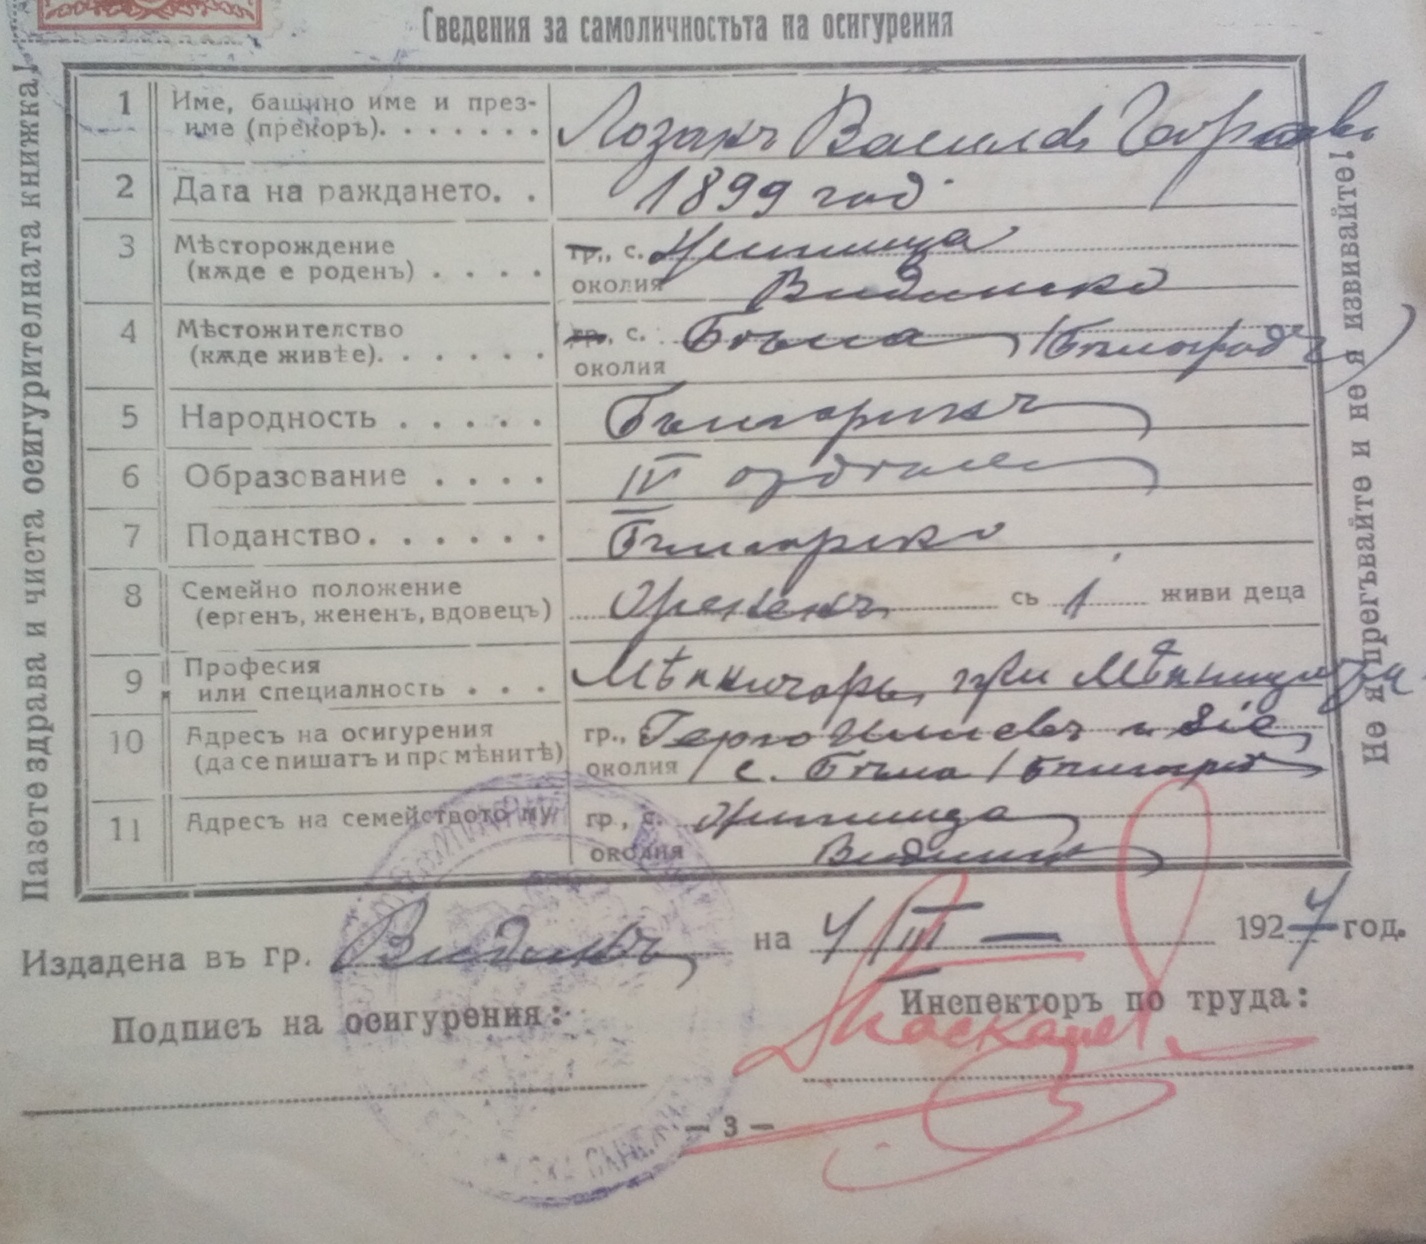 Сведения за самоличностьта на осигурения
Пазете здрава и чиста осигурителната книжка!
1 Име, башино име и през-
име (прекоръ). . . . . . . Лозанъ Василовъ Георгиевъ
2 Дата на раждането. . 1899 год.
3 Мѣсторождение гр., с.
(кѫде е роденъ) . . . . околия Видинско
4 Мѣстожителство гр., с. Бѣла /Бѣлоградч
(кѫде живѣе). . . . . . околия
5 Народность . . . . . Българинъ
6 Образование . . . . IV отдѣлен
7 Поданство. . . . . . Българско
8 Семейно положение
(ергенъ, жененъ, вдовецъ) Жененъ съ 1 живи деца
9 Професия
или специалность . . . Мѣничарь, при
10 Адресъ на осигурения гр., Герго Илиевъ и Sie
(да се пишатъ и промѣнитѣ) околия / с. Бѣла /
11 Адресъ на семейството му гр., с.
околия Видинск
Не я прегъвайте и не я извивайте!
Издадена въ гр. Видинъ на 4/III — 1927 год.
Подписъ на осигурения: Инспекторъ по труда:
— 3 —